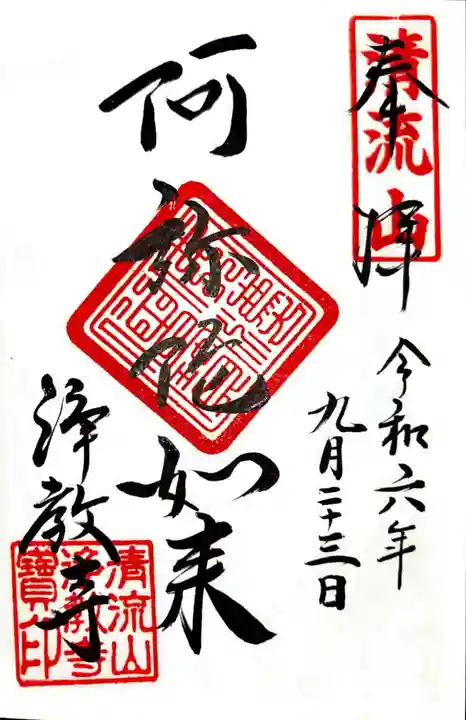 奉拝
清流山
令和六年
九月二十三日
阿弥陀如来
浄教寺
清流山
浄教寺
寳印